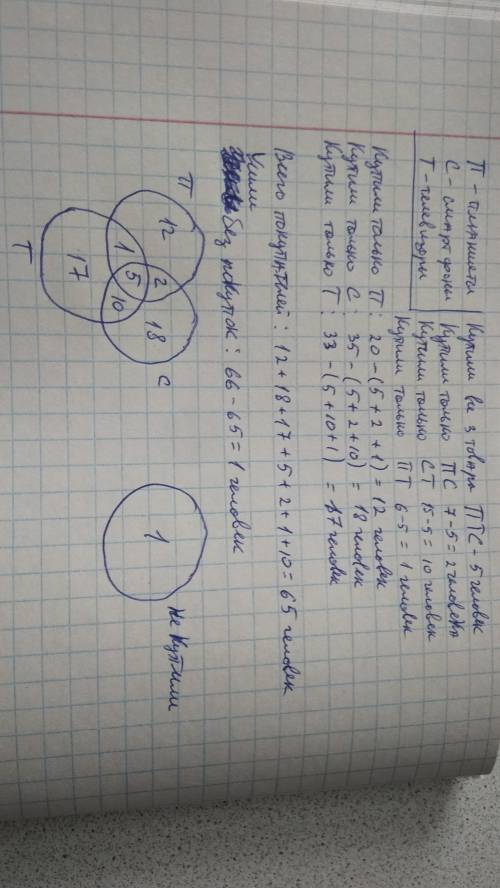 П - планшеты
С - смартфоны
Т - телевизоры
Купили все 3 товара ПТС - 5 человек
Купили только ПС 7-5=2 человека
Купили только СТ 15-5=10 человек
Купили только ПТ 6-5=1 человек
Купили только П: 20-(5+2+1)=12 человек
Купили только С: 35-(5+2+10)=18 человек
Купили только Т: 33-(5+10+1)=17 человек
Всего покупателей: 12+18+17+5+2+1+10=65 человек
Ушли
без покупок: 66-65=1 человек
П
12
1
5
2
10
18
С
17
Т
1
Не купили